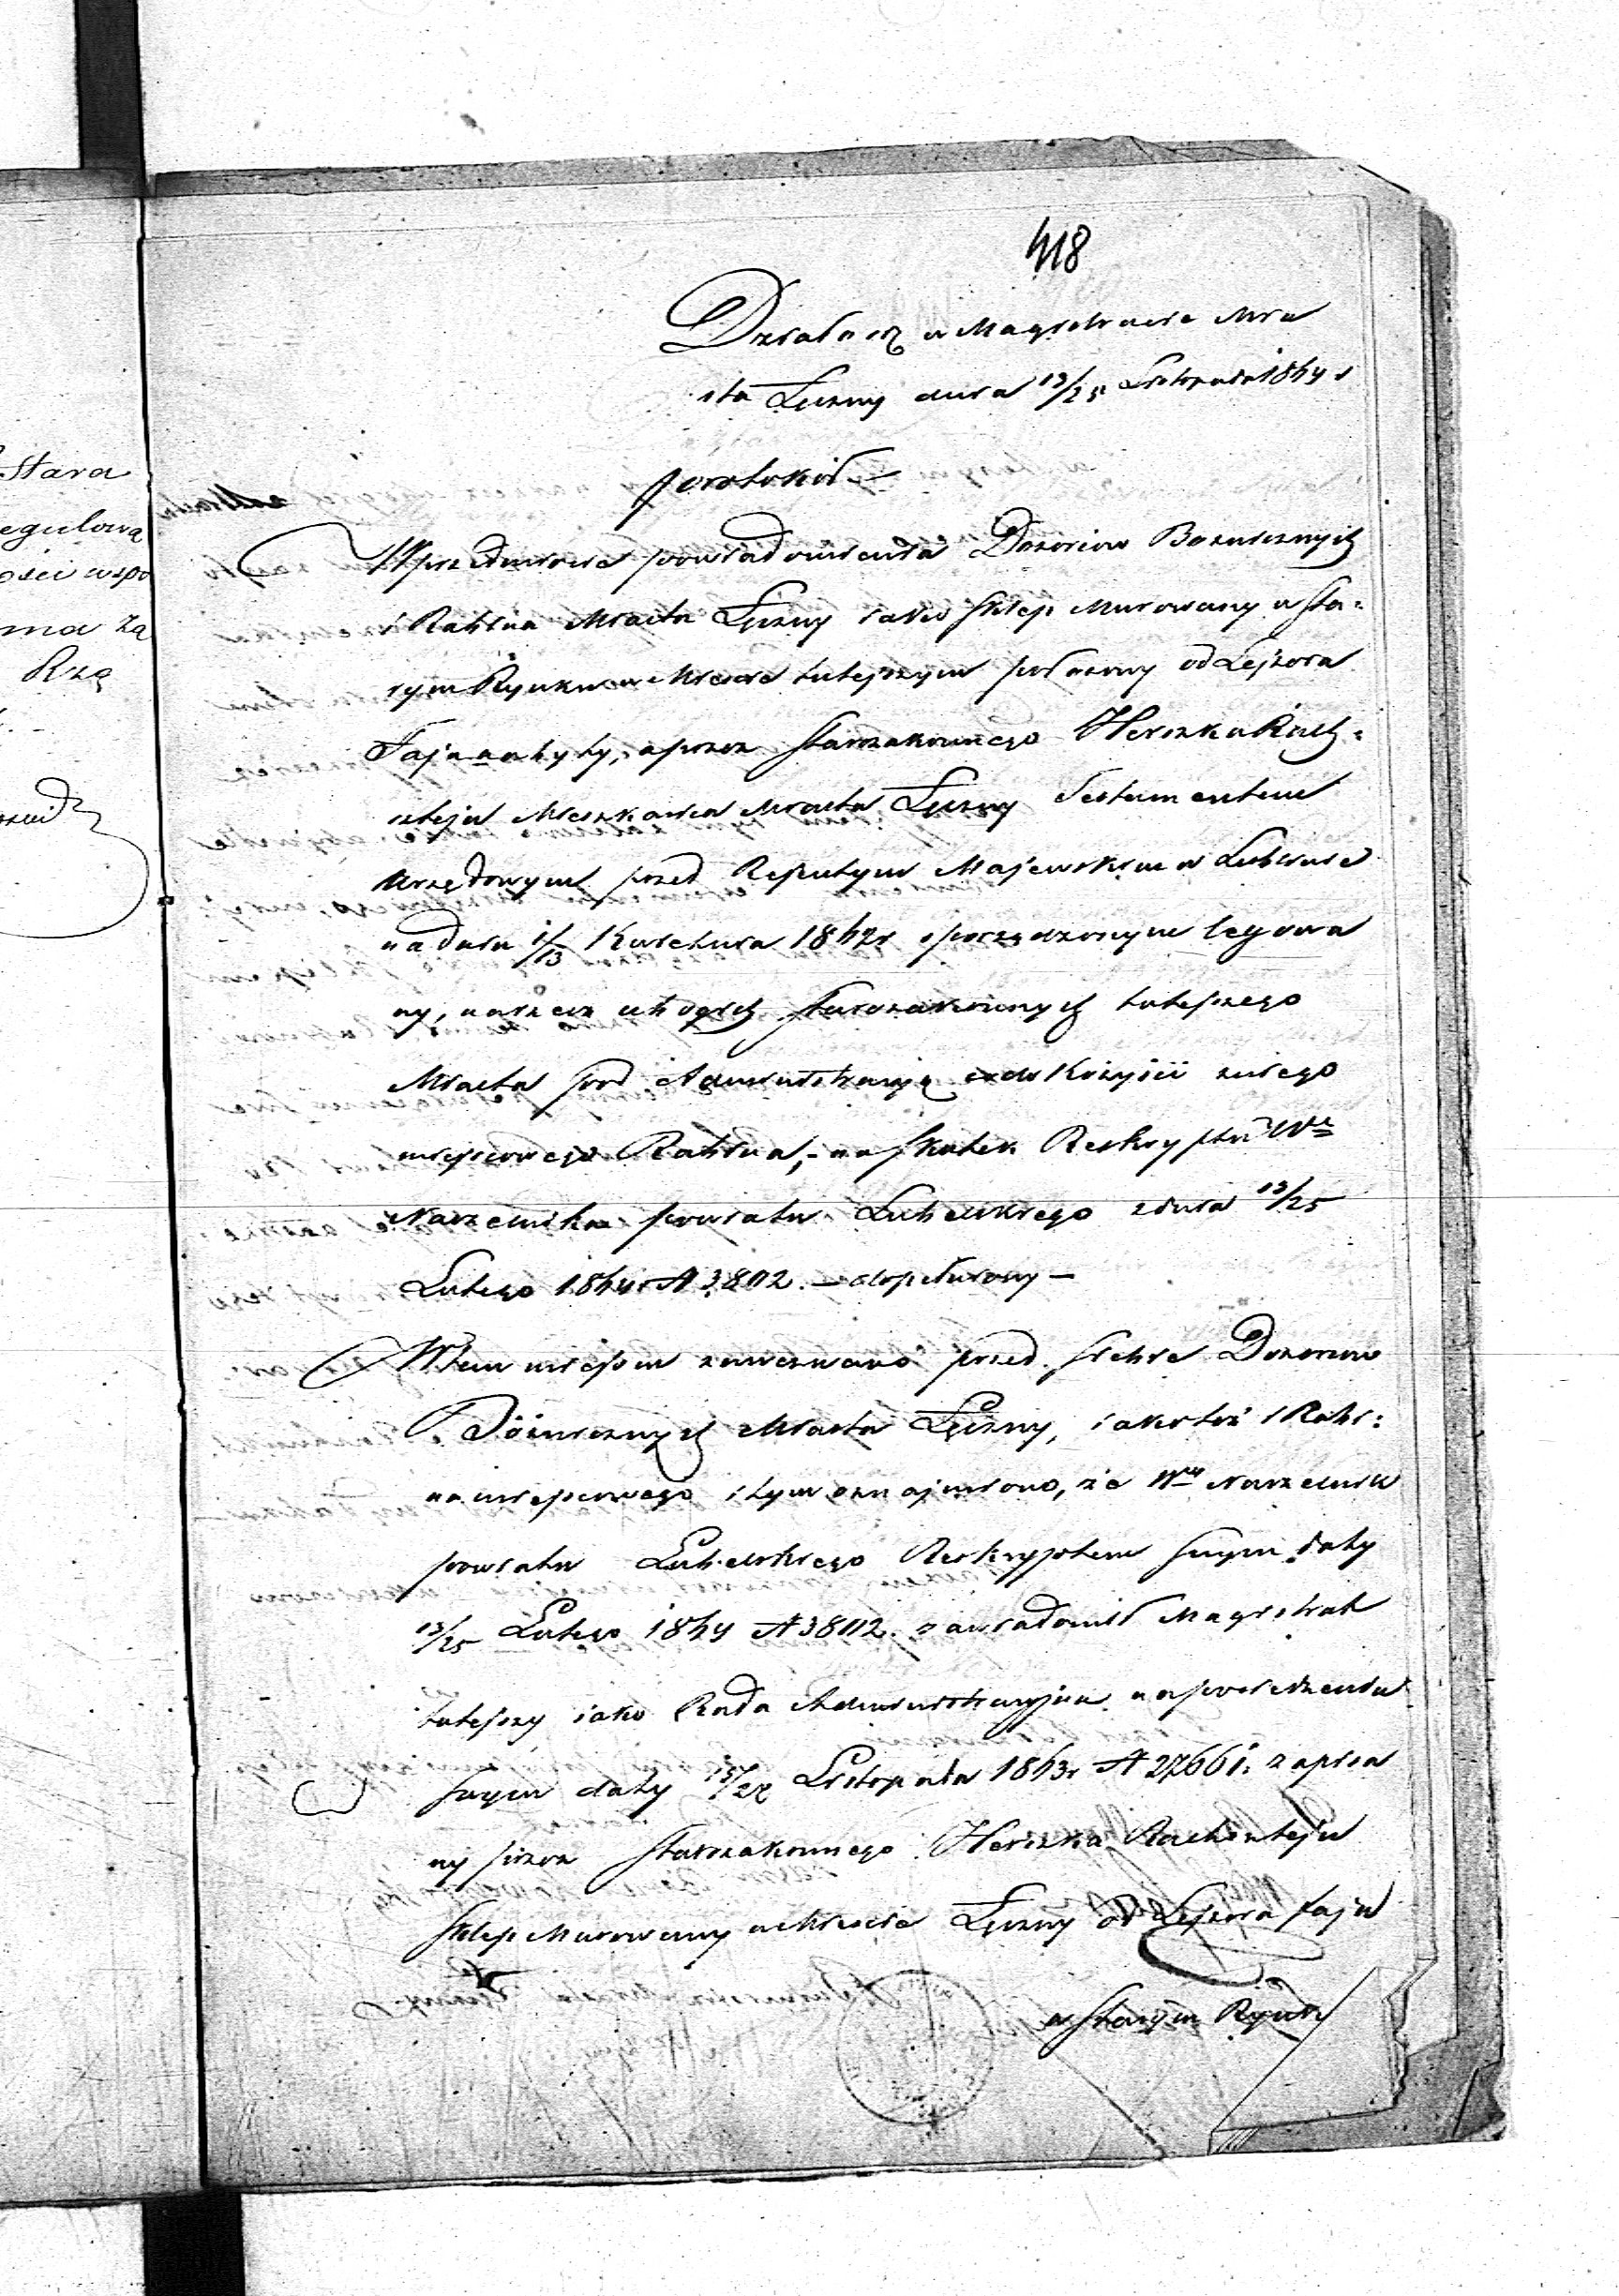 418
Działo się w Magistracie Mia
sta Łęczny dnia 13/25 Listopada 1844 r
Protokół
W przedmiocie powiadomienia Dozorców Bożniczych
i Rabina Miasta Łęczny iako Sklep Murowany w Sta=
rym Rynku w Mieście tutejszym położony od Lejzora
Fajna nabyty, a przez Starozakonnego Herszka Roch=
szteja Mieszkańca Miasta Łęczny Testamentem
Urzędowym przed Rejentem Majewskim w Lublinie
na dniu 1/13 Kwietnia 1842 r sporządzonym legowa
ny, na rzecz ubogich Starozakonnych tutejszego
Miasta pod Administracją i do dyspozycii
miejscowego Rabina, na skutek Reskryptu Wo
Naczelnika Powiatu Lubelskiego z dnia 13/25
Lutego 1844 r N 3802. — dopełniony —
W tem miejscu zawezwano przed siebie Dozorców
Bóżniczych Miasta Łęczny, iakoteż i Rabi=
na miejscowego i tym oznajmiono, że Wny Naczelnik
Powiatu Lubelskiego Reskryptem swym daty
13/25 Lutego 1844 N 3802. zawiadomił Magistrat
tutejszy iako Rada Administracyjna na posiedzeniu
swym daty 15/27 Listopada 1843 r N 27661. zapisa
ny przez Starozakonnego Herszka Rochszteju
Sklep Murowany w Mieście Łęczny od Lejzora Fajn
w Starym Rynku
Stara
egulowa
ości wspo
ma za
Rzą